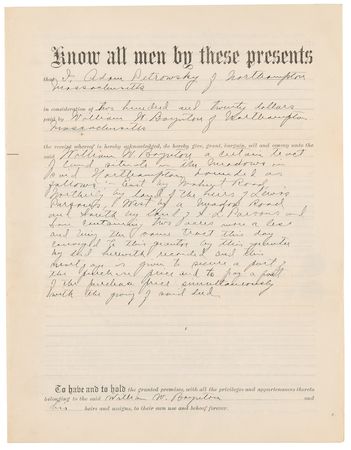 Know all men by these presents
that I, Adam Petrowsky of Northampton
Massachusetts
in consideration of two hundred and twenty dollars
paid by William W. Boynton of Northampton
Massachusetts
the receipt whereof is hereby acknowledged, do hereby give, grant, bargain, sell and convey unto the
said William W. Boynton a certain tract
of land situate in the meadows in
said Northampton bounded as
follows:- East by Road
Northerly by land of the heirs of Lewis
Parsons, West by a Meadow Road
and South by land of Parsons and
containing two acres more or less
and being the same tract this day
conveyed to this grantor by this grantee
by deed herewith recorded and this
mortgage is given to secure a part of
the purchase price and to pay a part
of the purchase price simultaneously
with the giving of said deed.
To have and to hold the granted premises, with all the privileges and appurtenances thereto
belonging to the said William W. Boynton and
his heirs and assigns, to their own use and behoof forever.